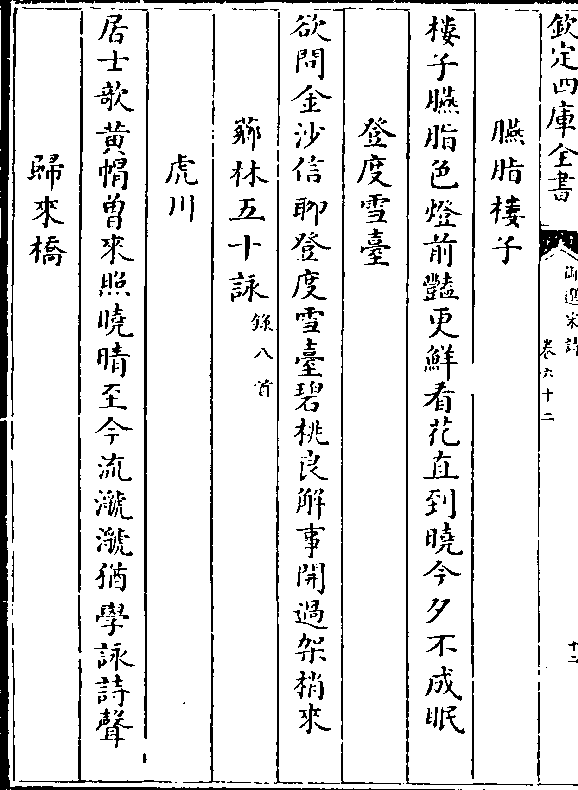 欽定四庫全書
御選宋詩
卷六十二
十二
臙脂樓子
樓子臙脂色燈前豔更鮮看花直到曉今夕不成眠
登度雪臺
欲問金沙信聊登度雪臺碧桃良解事開過架梢來
薌林五十詠錄八首
虎川
居士歌黃㡌曽來照曉晴至今流㶁㶁猶學詠詩聲
歸來橋